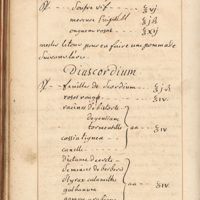 Soufre vif ʒvj
mercure
onguent rosat ℥xj
meslez le tout pour en faire une pommade
Suivant l'art
Diascordium
feuilles de scordium
roses rouges ℥iv
racines de bistorte
de gentiane
tormentille aa ℥iv
cassia lignea
canelle
dictame de crete
Semences de berberis
Styrax calamithe
galbanum aa ℥iv
gomme arabique